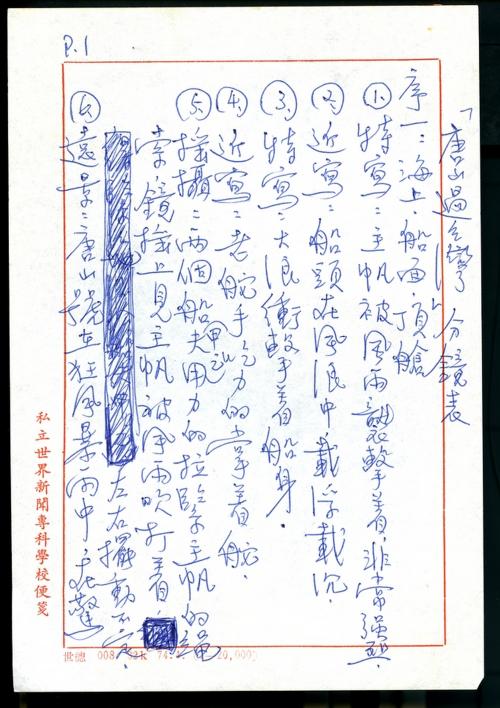 P.1
「唐山過台灣」分鏡表
序一：海上，船面，頂艙
①特寫：主帆被風雨襲擊着，非常強烈．
②近寫：船頭在風浪中載浮載沉．
③特寫：大浪衝擊着船身．
④近寫：老舵手乞力的掌着舵．
⑤搖攝：兩個船夫甲乙用力的拉緊主帆的繩
索，鏡搖上見主帆被風雨吹打着，
左右擺動不定．
⑥遠景：唐山號在狂風暴雨中，在驚
私立世界新聞專科學校便箋
世總 008 62K 74 20,000